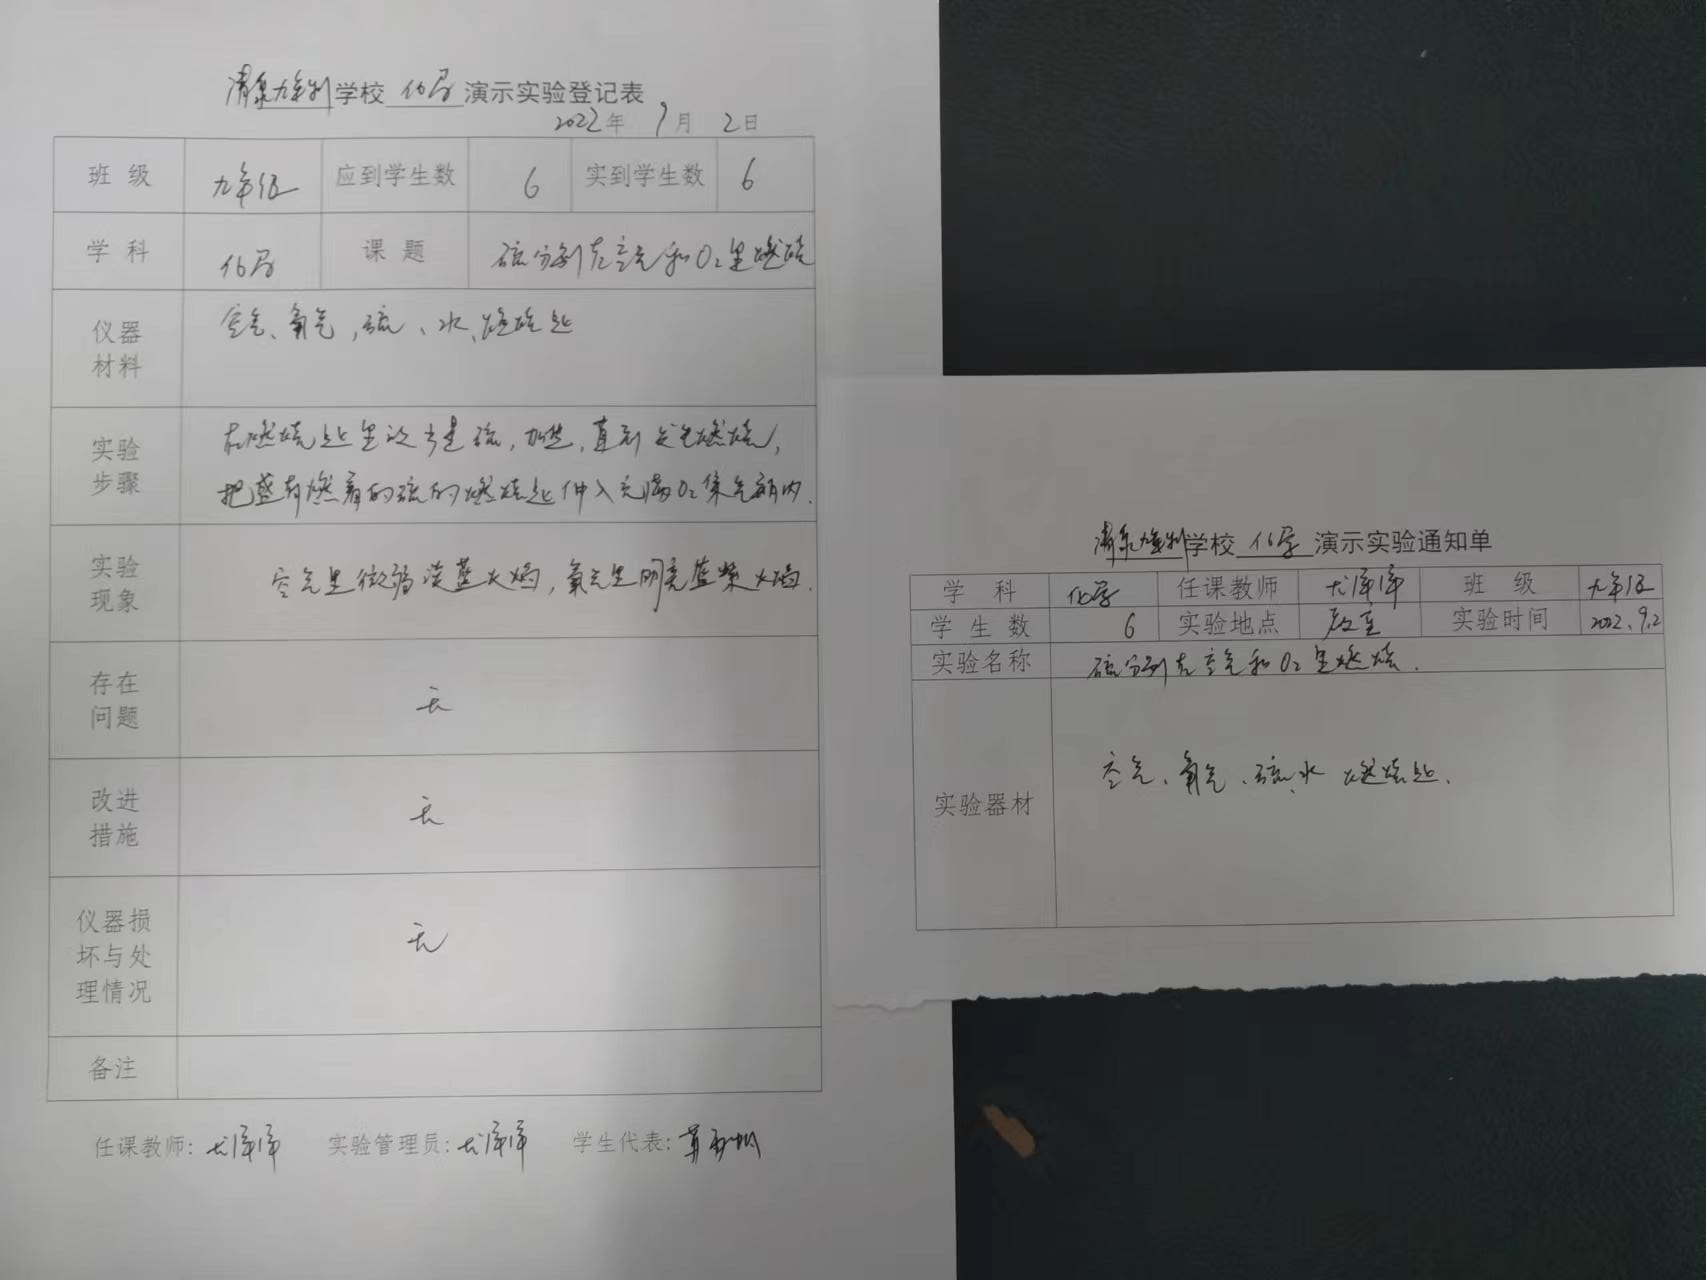 清泉九年制学校 化学 演示实验登记表
2022年 9月 2日
班 级 九年级 应到学生数 6 实到学生数 6
学 科 化学 课 题 硫分别在空气和O₂里燃烧
仪器
材料
空气、氧气,硫、水、燃烧匙
实验
步骤
在燃烧匙里放少量硫,加热,直到发生燃烧,
把盛有燃着的硫的燃烧匙伸入充满O₂集气瓶内.
实验
现象
空气里微弱淡蓝火焰,氧气里明亮蓝紫火焰.
存在
问题
无
改进
措施
无
仪器损
坏与处
理情况
无
备注
任课教师: 实验管理员: 学生代表:
清泉九年制学校 化学 演示实验通知单
学 科 化学 任课教师 班 级 九年级
学 生 数 6 实验地点 教室 实验时间 2022.9.2
实验名称 硫分别在空气和O₂里燃烧.
实验器材
空气、氧气、硫、水 燃烧匙.